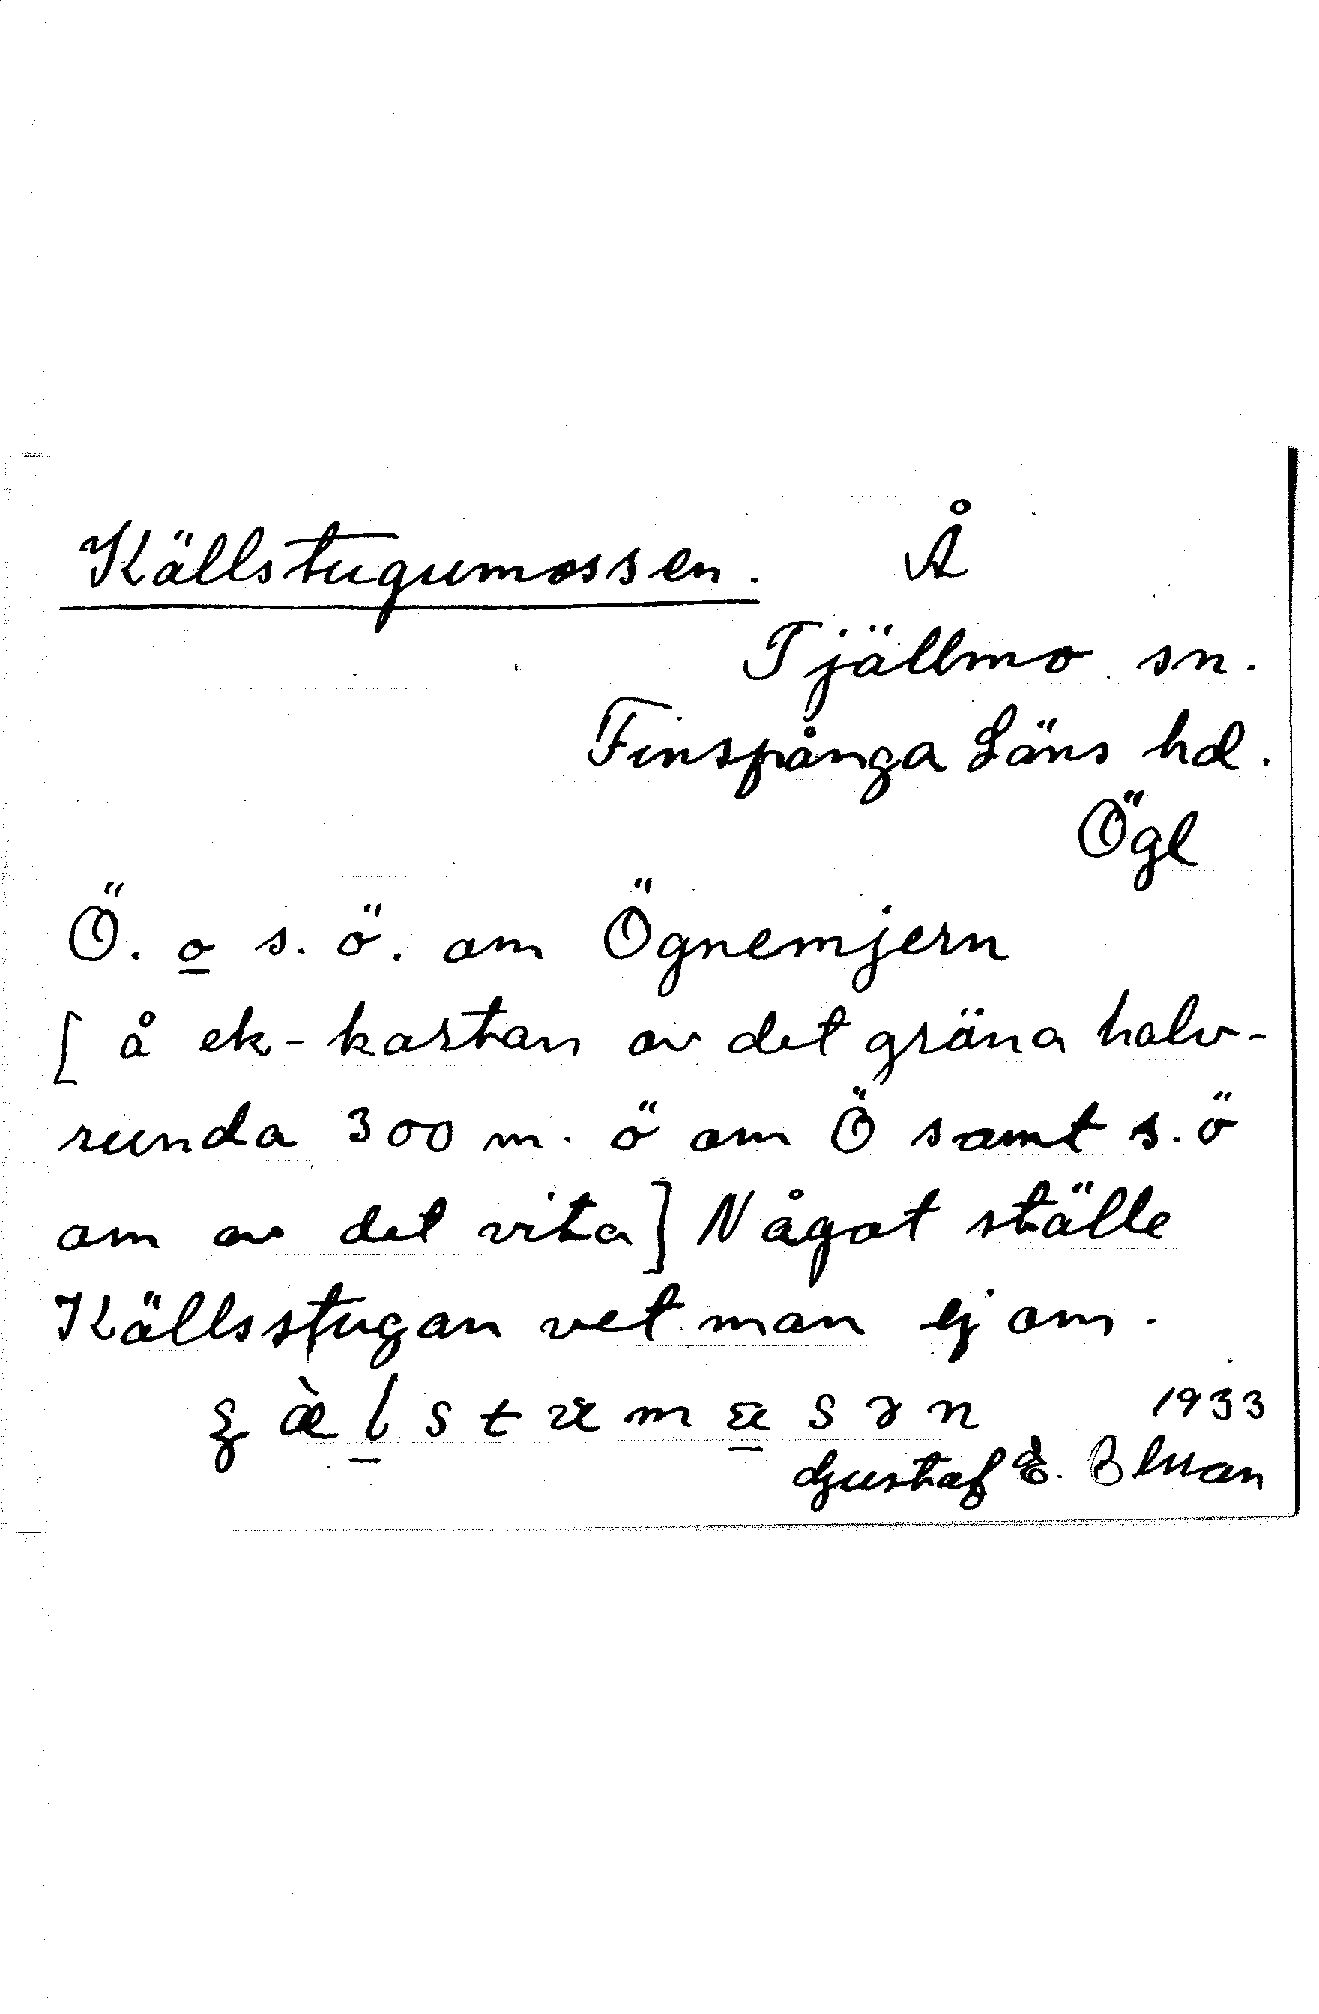 Källstugumossen. Å
Tjällmo sn.
Finspånga Läns hd.
Ögl
Ö. o s. ö. om Ögnemjern
[ å ek-kartan av det gröna halv-
runda 300 m. ö om Ö samt s. ö
om av det vita] Något ställe
Källsstugan vet man ej om.
1933
Gustaf E. Blman